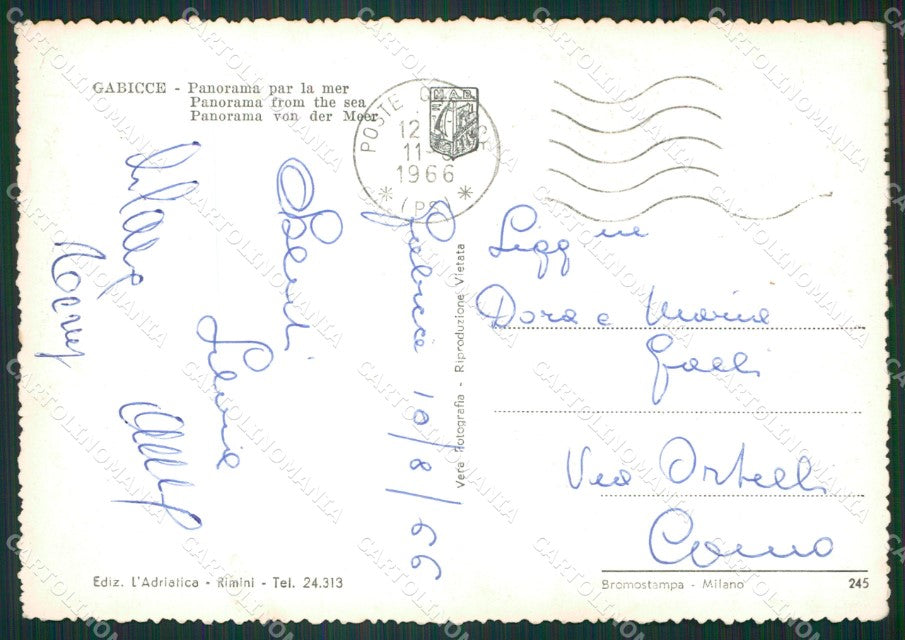 GABICCE - Panorama par la mer
Panorama from the sea
Panorama von der Meer
POSTE
M.A.B.
12
11
1966
(PS)
Gabicce 10/8/66
Saluti
Silvia
Vera Fotografia - Riproduzione Vietata
Sigg ne
Dora e Maria
Galli
Via Ortelli
Como
Ediz. L'Adriatica - Rimini - Tel. 24.313
Bromostampa - Milano
245
CARTOLINOMANIA